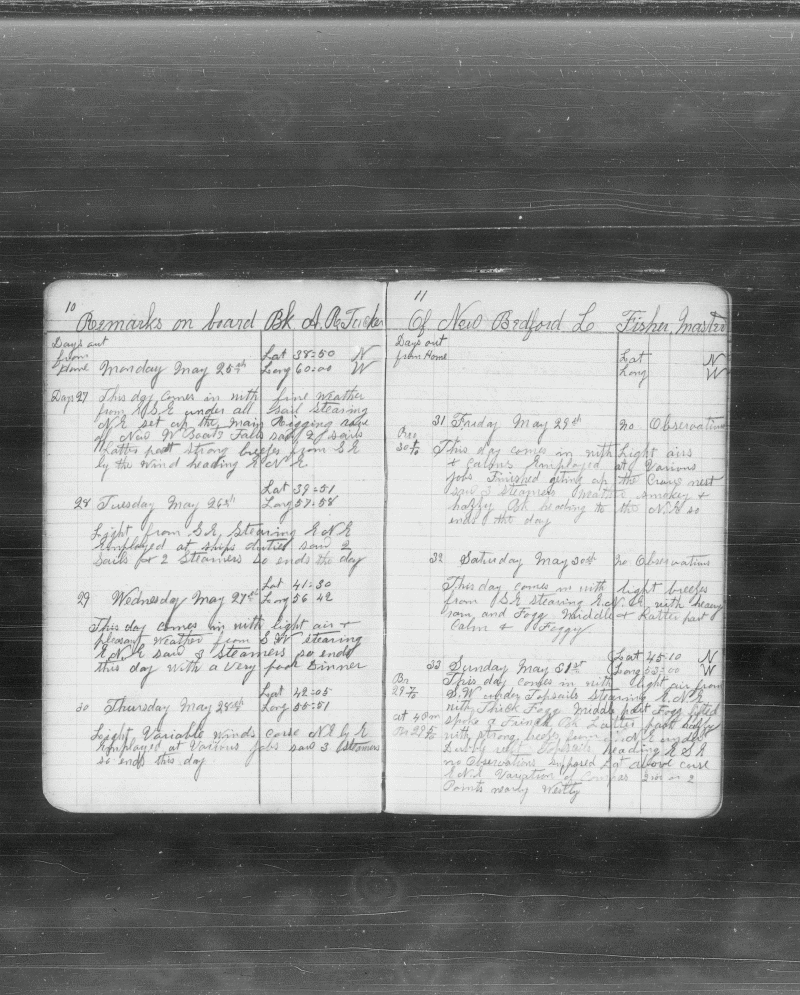 10
Remarks on board Bk A. R. Tucker
Days out
from
Home Monday May 25th Lat 38=50 N
Long 60=00 W
Days 27 This day comes in with fine weather
from E.S.E under all sail Stearing
N.E set up the Main Rigging
of New W Boats Falls saw 2 sails
Latter part strong breeses from S.E
by the wind heading E.N.E
Lat 39=51
28 Tuesday May 26th Long 57=58
Light from S.E, Stearing E N E
Employed at ships duties saw 2
Sails for 2 Steamers so ends the day
Lat 41=30
29 Wednesday May 27th Long 56 42
This day comes in with light air +
pleasant weather from S W stearing
E.N.E saw 3 steamers so ends
this day with a very poor Dinner
Lat 42=05
30 Thursday May 28th Long 55=51
Light Variable Winds Corse N.E by E
Employed at Various jobs saw 3 Steamers
so ends this day
11
Of New Bedford L Fisher, Master
Days out
from Home Lat N
Long W
31 Friday May 29th no Observation
This day comes in with Light airs
+ calms Employed at Various
jobs Finished geting up the Crows nest
saw 3 Steamers weather smokey +
hazzy Bk heading to the N.E so
ends the day
32 Saturday May 30th no Observations
This day comes in with light breeses
from S E Stearing E.N.E. with heavy
rain and Fogg Middle + Latter part
Calm + Foggy.
33 Sunday May 31st Lat 45=10 N
Long 53=00 W
This day comes in with light air from
S.W under Topsails Stearing E.N.E
with Thick Fogg Middle part Fogg lifted
at 4 Pm spoke a French Bk Latter part hazy
with strong breeses from N.E under
Topsails heading E S E
no Observations supposed Lat above corse
E.N.E Variation of Compas 2 or
Points nearly Westly